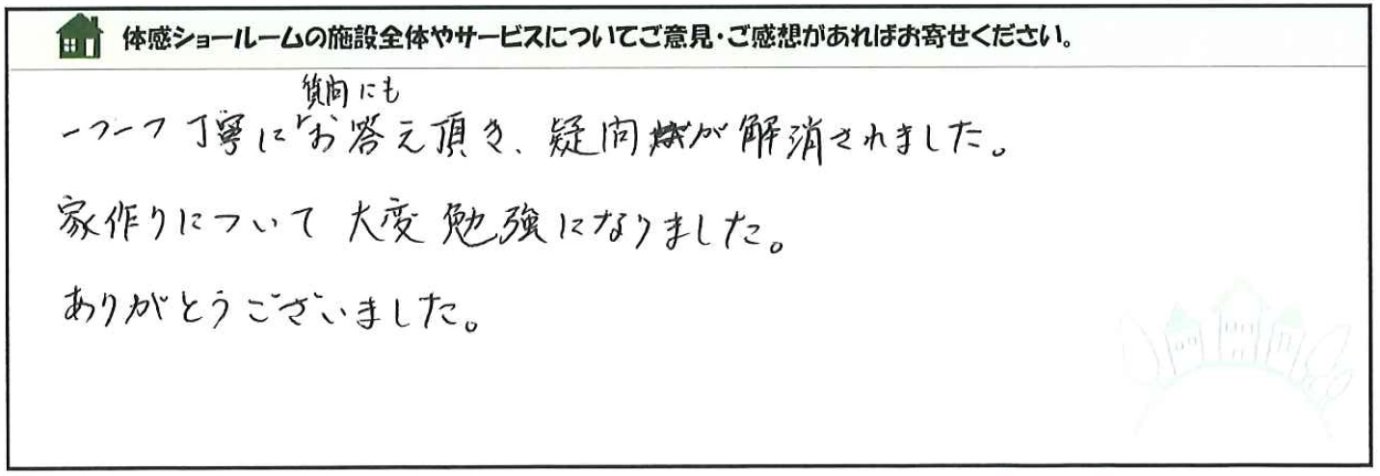 体感ショールームの施設全体やサービスについてご意見・ご感想があればお寄せください。
質問にも
一つ一つ丁寧にお答え頂き、疑問が解消されました。
家作りについて大変勉強になりました。
ありがとうございました。